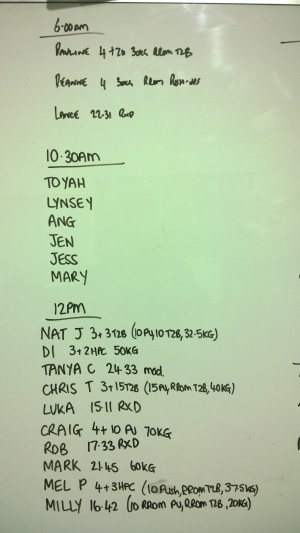 6:00am
PAULINE 4+20 30KG RROM T2B
DEANNE 4 30KG RROM PUSH-UPS
LANCE 22.31 RXD
10.30AM
TOYAH
LYNSEY
ANG
JEN
JESS
MARY
12PM
NAT J 3+3T2B (10PU, 10T2B, 32.5KG)
DI 3+2HPC 50KG
TANYA C 24.33 mod.
CHRIS T 3+15T2B (15PU, RROM T2B, 40KG)
LUKA 15.11 RXD
CRAIG 4+10 PU 70KG
ROB 17.33 RXD
MARK 21.45 60KG
MEL P 4+3HPC (10 PUSH, RROM T2B, 37.5KG)
MILLY 16.42 (10 RROM PU, RROM T2B, 20KG)